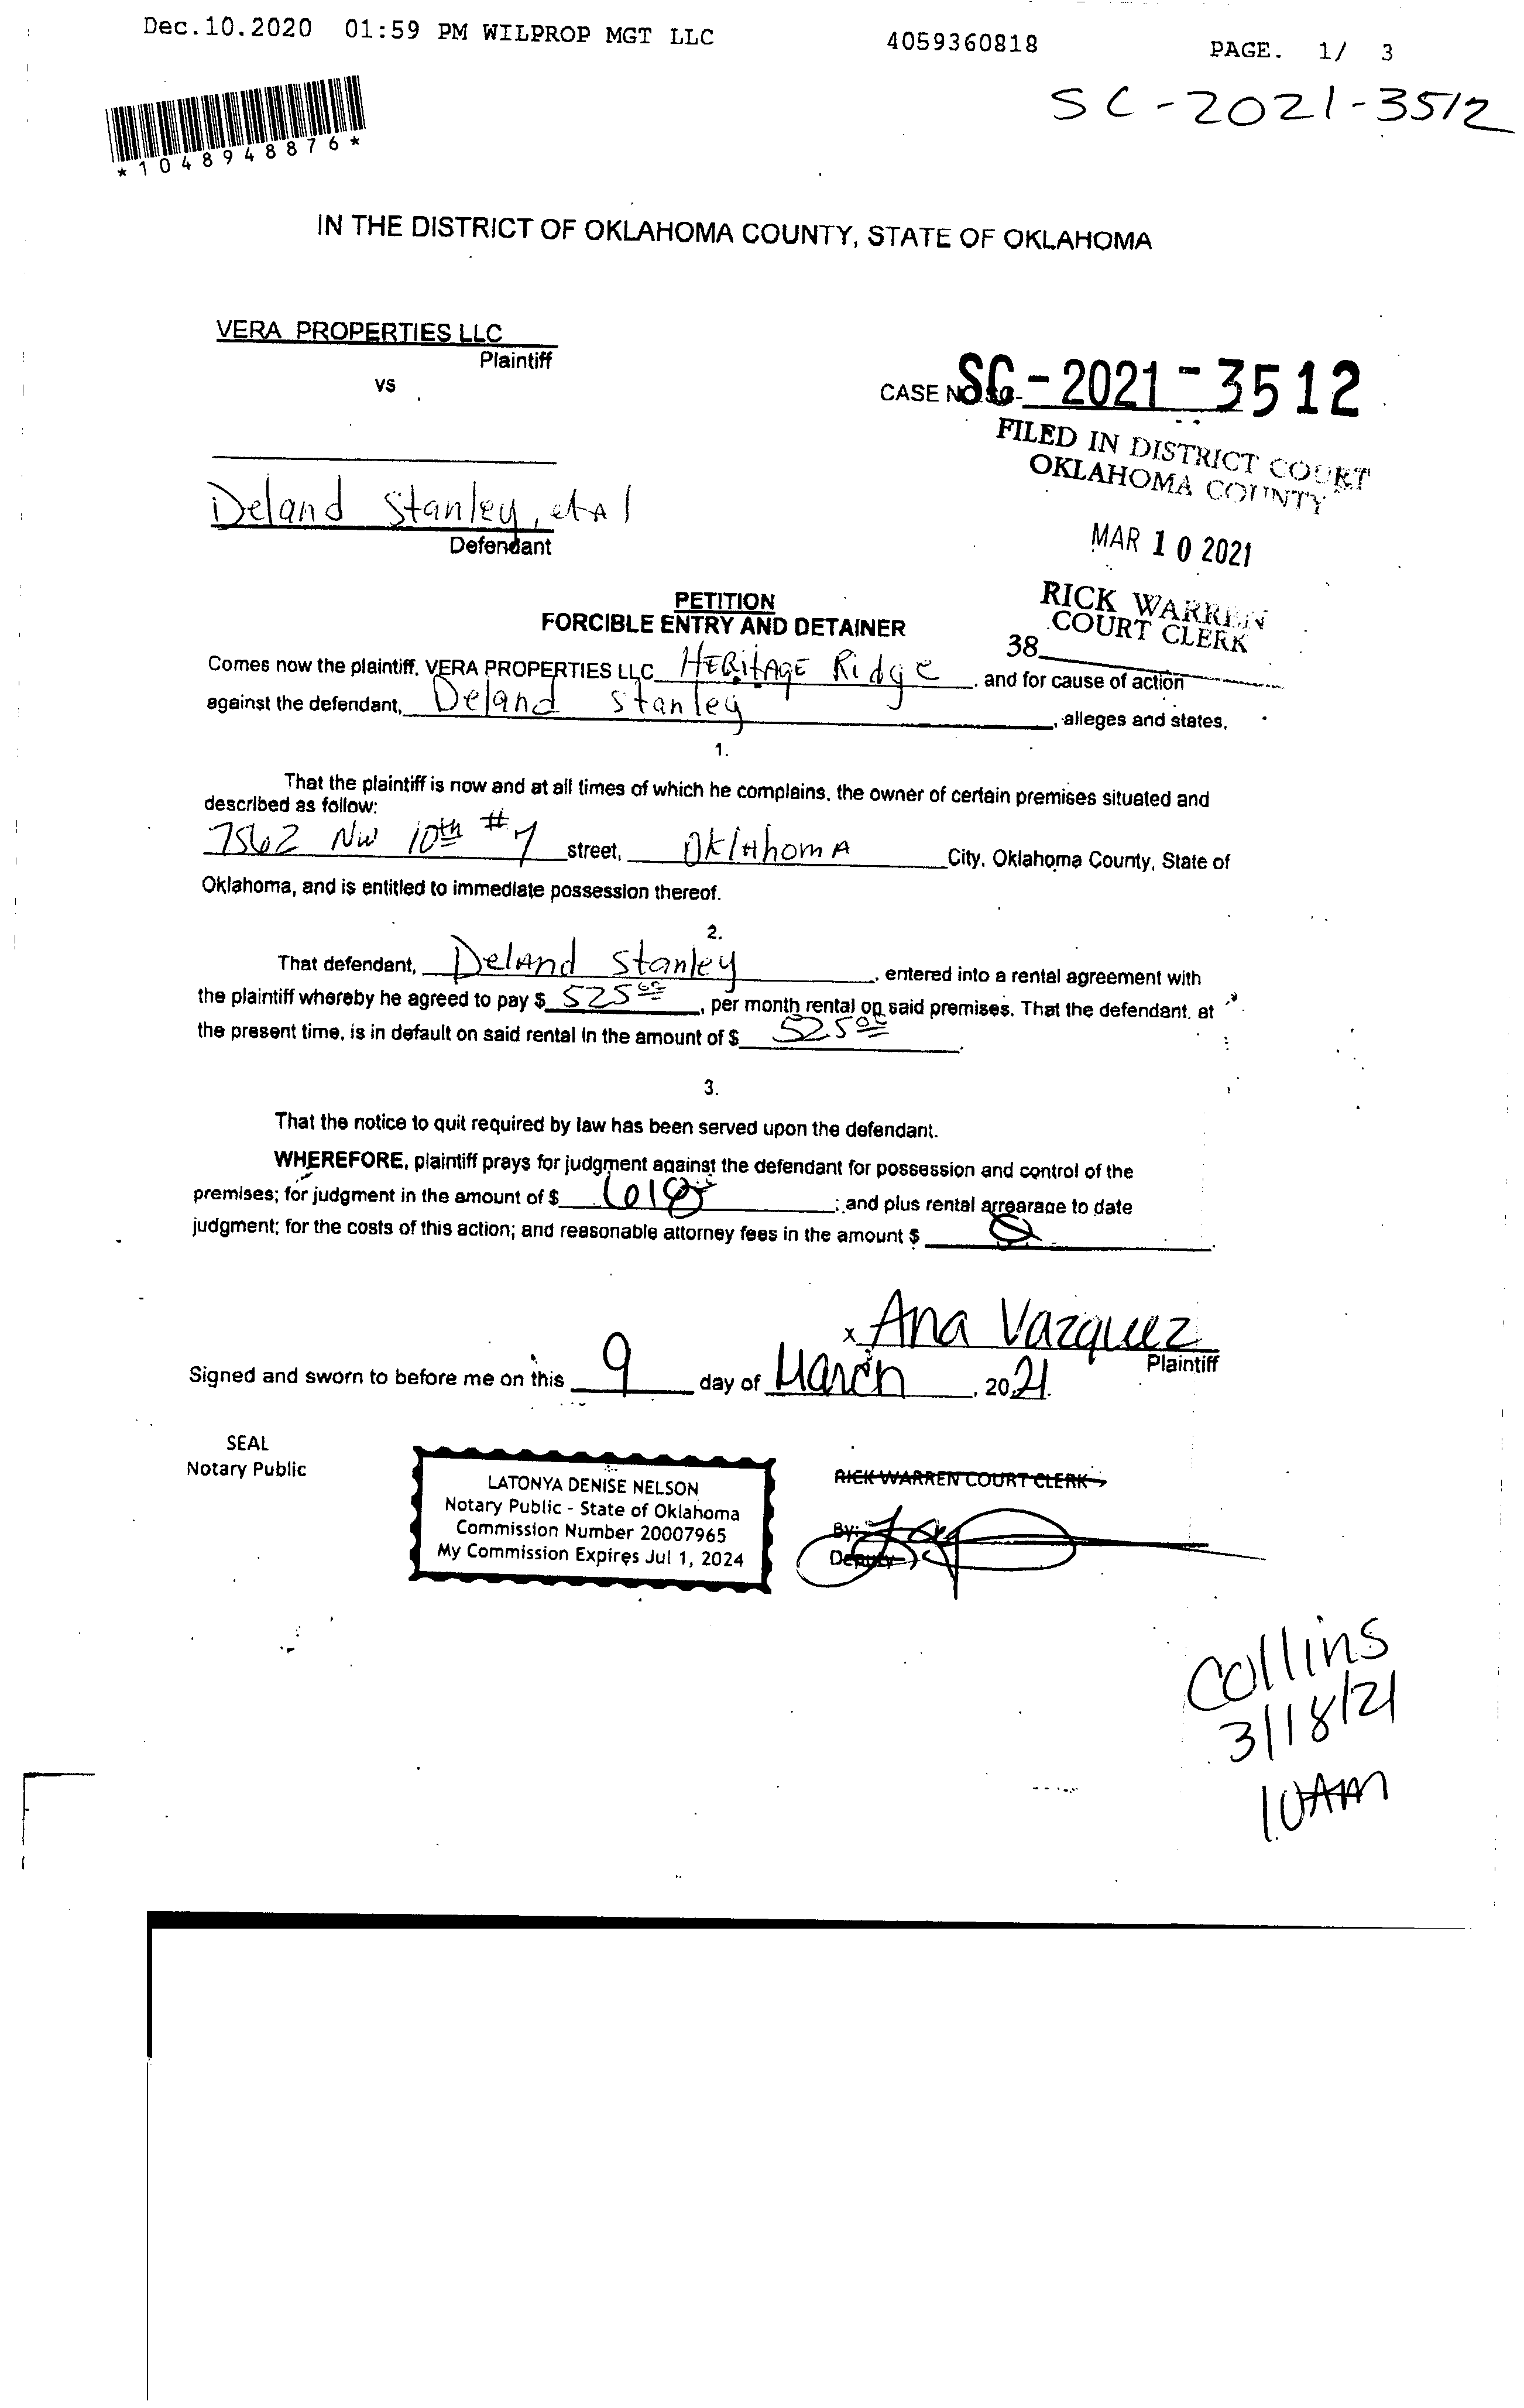 Dec.10.2020 01:59 PM WILPROP MGT LLC 4059360818 PAGE. 1/ 3
SC-2021-3512
*1048948876*
IN THE DISTRICT OF OKLAHOMA COUNTY, STATE OF OKLAHOMA
VERA PROPERTIES LLC
Plaintiff
vs
CASE NO. SC-2021-3512
FILED IN DISTRICT COURT
OKLAHOMA COUNTY
Deland Stanley, et Al
Defendant
MAR 10 2021
PETITION
FORCIBLE ENTRY AND DETAINER
RICK WARREN
COURT CLERK
38
Comes now the plaintiff, VERA PROPERTIES LLC HERitAGE Ridge, and for cause of action
against the defendant, Deland Stanley, alleges and states,
1.
That the plaintiff is now and at all times of which he complains, the owner of certain premises situated and
described as follow:
7562 NW 10th #7 street, OklAhomA City, Oklahoma County, State of
Oklahoma, and is entitled to immediate possession thereof.
2.
That defendant, DelAnd Stanley, entered into a rental agreement with
the plaintiff whereby he agreed to pay $ 525 00, per month rental on said premises. That the defendant, at
the present time, is in default on said rental in the amount of $ 525 00.
3.
That the notice to quit required by law has been served upon the defendant.
WHEREFORE, plaintiff prays for judgment against the defendant for possession and control of the
premises; for judgment in the amount of $ ; and plus rental arrearage to date
judgment; for the costs of this action; and reasonable attorney fees in the amount $
x Ana Vazquez
Plaintiff
Signed and sworn to before me on this 9 day of March, 2021.
SEAL
Notary Public
LATONYA DENISE NELSON
Notary Public - State of Oklahoma
Commission Number 20007965
My Commission Expires Jul 1, 2024
RICK WARREN COURT CLERK
By:
Deputy
Collins
3/18/21
10AM